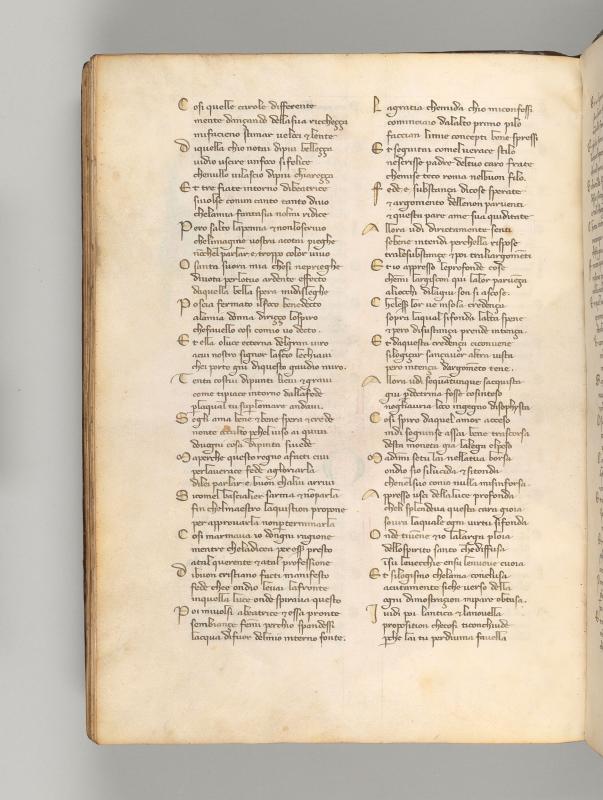 Cosi quelle carole differente
mente dançando dellasua ricchecça
mifacieno stimar veloci & lente
Diquella chio notai dipiu bellecça
uidio uscire unfoco sifelice
chenullo uilascio dipiu chiarecça
Et tre fiate intorno dibeatrice
siuolse conun canto tanto diuo
chelamia fantasia nolmi ridice
Pero salta lapenna & nonloscriuo
chelimagine nostra acotai pieghe
nonchel parlar e troppo color uiuo
O santa suora mia chosi neprieghe
diuota perlotuo ardente affecto
daquella bella spera midisleghe
Poscia fermato ilfoco benedecto
alamia donna diricço lospiro
chefauello cosi comio vo decto.
Et ella oluce ecterna delgran uiro
acui nostro signor lascio lechiaui
chei porto giu diquesto gaudio miro.
Tenta costui dipunti lieui & graui
come tipiace intorno dallafede
plaqual tu suplomare andaui.
Segli ama bene & bene spera & crede
nonte occulto pchel uiso ai quiui
douogni cosa dipinta siuede
Maperche questo regno afatti ciui
perlauerace fede agloriarla
dilei parlar e buon chalui arriui
Sicomel baccialier sarma & nonparla
fin chelmaestro laquistion propone
per approuarla nonperterminarla
Cosi marmaua io dongni ragione
mentre cheladicea peresser presto
atal querente & atal professione
Dibuon cristiano facti manifesto
fede chee ondio leuai lafronte
inquella luce onde spiraua questo
Poi miuolsi abeatrice & essa pronte
sembiançe femi perchio spandessi
lacqua difuor delmio interno fonte.
Lagratia chemida chio miconfessi
cominciaio dalalto primo pilo
faccian limie concepti bene spressi
Et seguitai comel uerace stilo
nescrisse padre deltuo caro frate
chemise teco roma nelbuon filo.
Fede e substança dicose sperate
& argomento dellenon paruenti
& questa pare ame sua quiditate
Allora udi dirictamente senti
sebene intendi perchella rispose
tralesubstançe & poi traliargomenti
Et io appresso leprofonde cose
chemi largiscon qui lalor paruença
aliocchi dilagiu son si ascose.
Chelesser lor ve insola credença
sopra laqual sifonda lalta spene
& pero disustança prende intença.
Et daquesta credença ciconuene
silogiçar sançauer altra uista
pero intença dargomento tene.
Allora udi sequantunque sacquista
giu pdoctrina fosse cosinteso
nogliauria loco ingegno disophysta
Cosi spiro daquel amor acceso
indi sogiunse assai bene trascorsa
desta moneta gia lalega elpeso
Madimi setu lai nellatua borsa
ondio sio silucida & sitonda
chenelsuo conio nulla misinforsa.
Appresso usci dellaluce profonda
cheli splendeua questa cara gioia
soura laquale ogni uirtu sifonda
Onde tiuene & io lalarga ploia
dellospirito sancto chediffusa
insu leuecchie ensu lenuoue cuoia
Et silogismo chelama conclusa
acutamente siche uerso della
ogni dimostraçion mipare obtusa.
Iudi poi lantica & lanouella
proposition checosi ticonchiude
pche lai tu perdiuina fauella